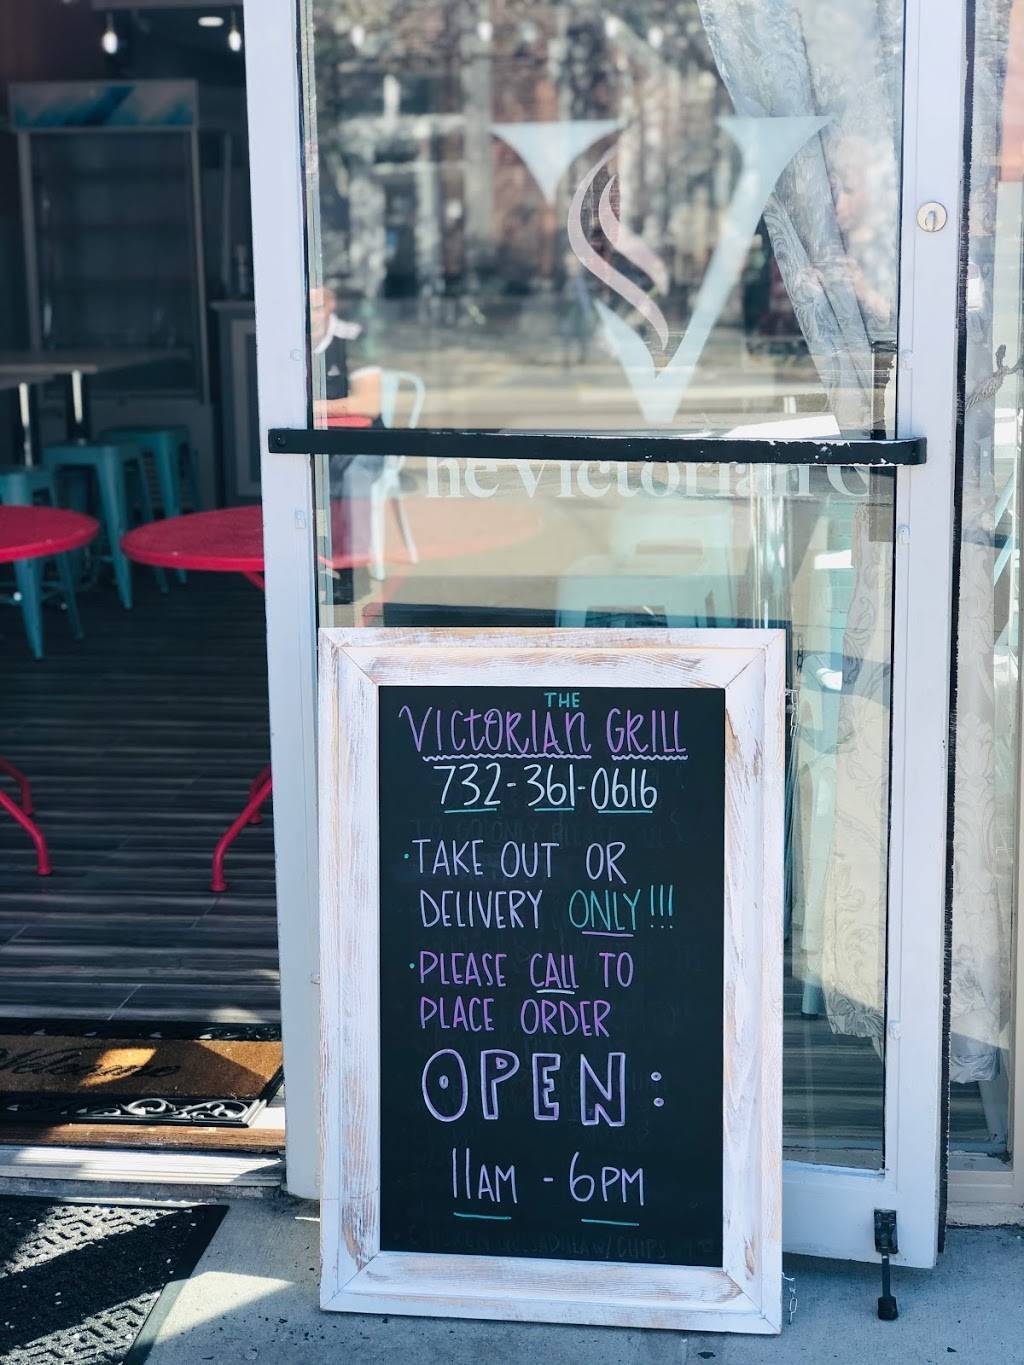 The Victorian G
THE
VICTORIAN GRILL
732-361-0616
·TAKE OUT OR
DELIVERY ONLY!!!
·PLEASE CALL TO
PLACE ORDER
OPEN:
11AM - 6PM
Welcome